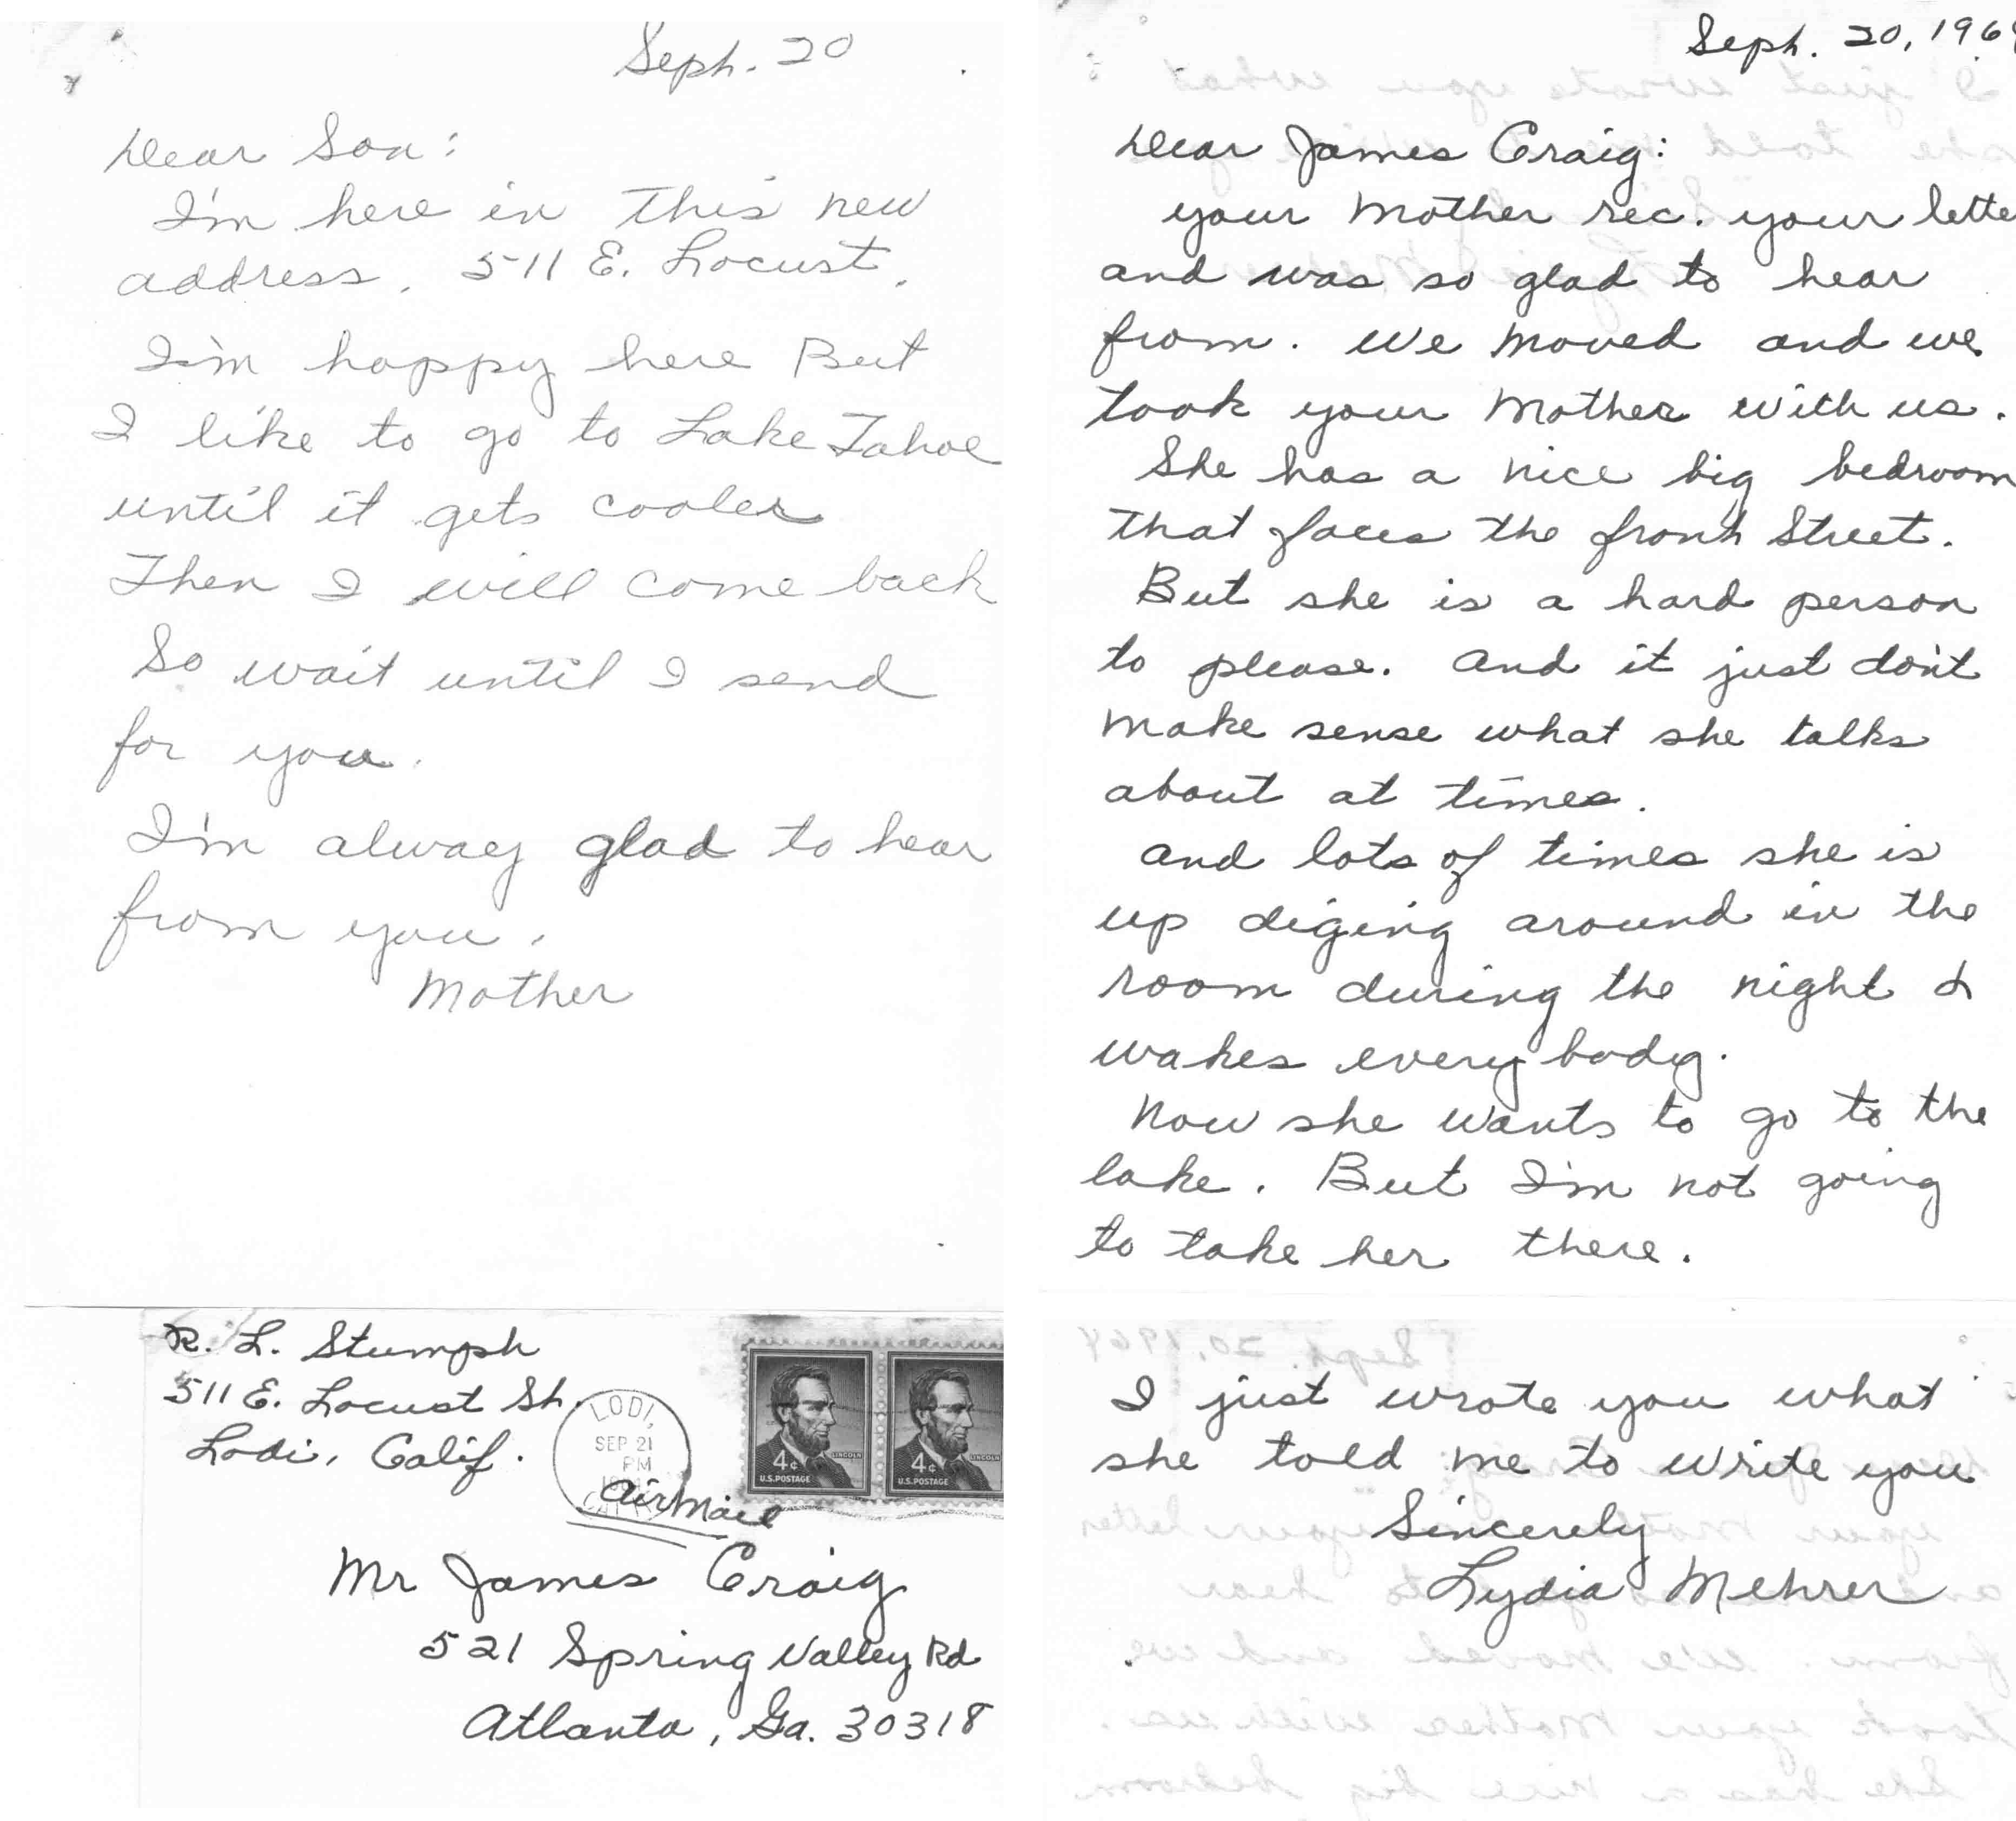 Sept. 20
Dear Son:
I'm here in this new
address. 511 E. Locust.
I'm happy here But
I like to go to Lake Tahoe
until it gets cooler
Then I will come back
So wait until I send
for you.
I'm alway glad to hear
from you.
Mother
R. L. Stumph
511 E. Locust St.
Lodi, Calif.
LODI,
SEP 21
PM
Air Mail
4¢
LINCOLN
U.S. POSTAGE
4¢
LINCOLN
U.S. POSTAGE
Mr James Craig
521 Spring Valley Rd
Atlanta, Ga. 30318
Sept. 20, 196
Dear James Craig:
your Mother rec. your lette
and was so glad to hear
from. We moved and we
took your Mother with us.
She has a nice big bedroom
that faces the front Street.
But she is a hard person
to please. And it just don't
make sense what she talks
about at times.
And lots of times she is
up diging around in the
room during the night &
wakes every body.
Now she wants to go to the
lake. But I'm not going
to take her there.
I just wrote you what
she told me to write you
Sincerely
Lydia Mehrer